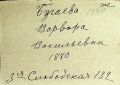 Бугаева
Варвара
Васильевна
1880
3ая Слободская 139